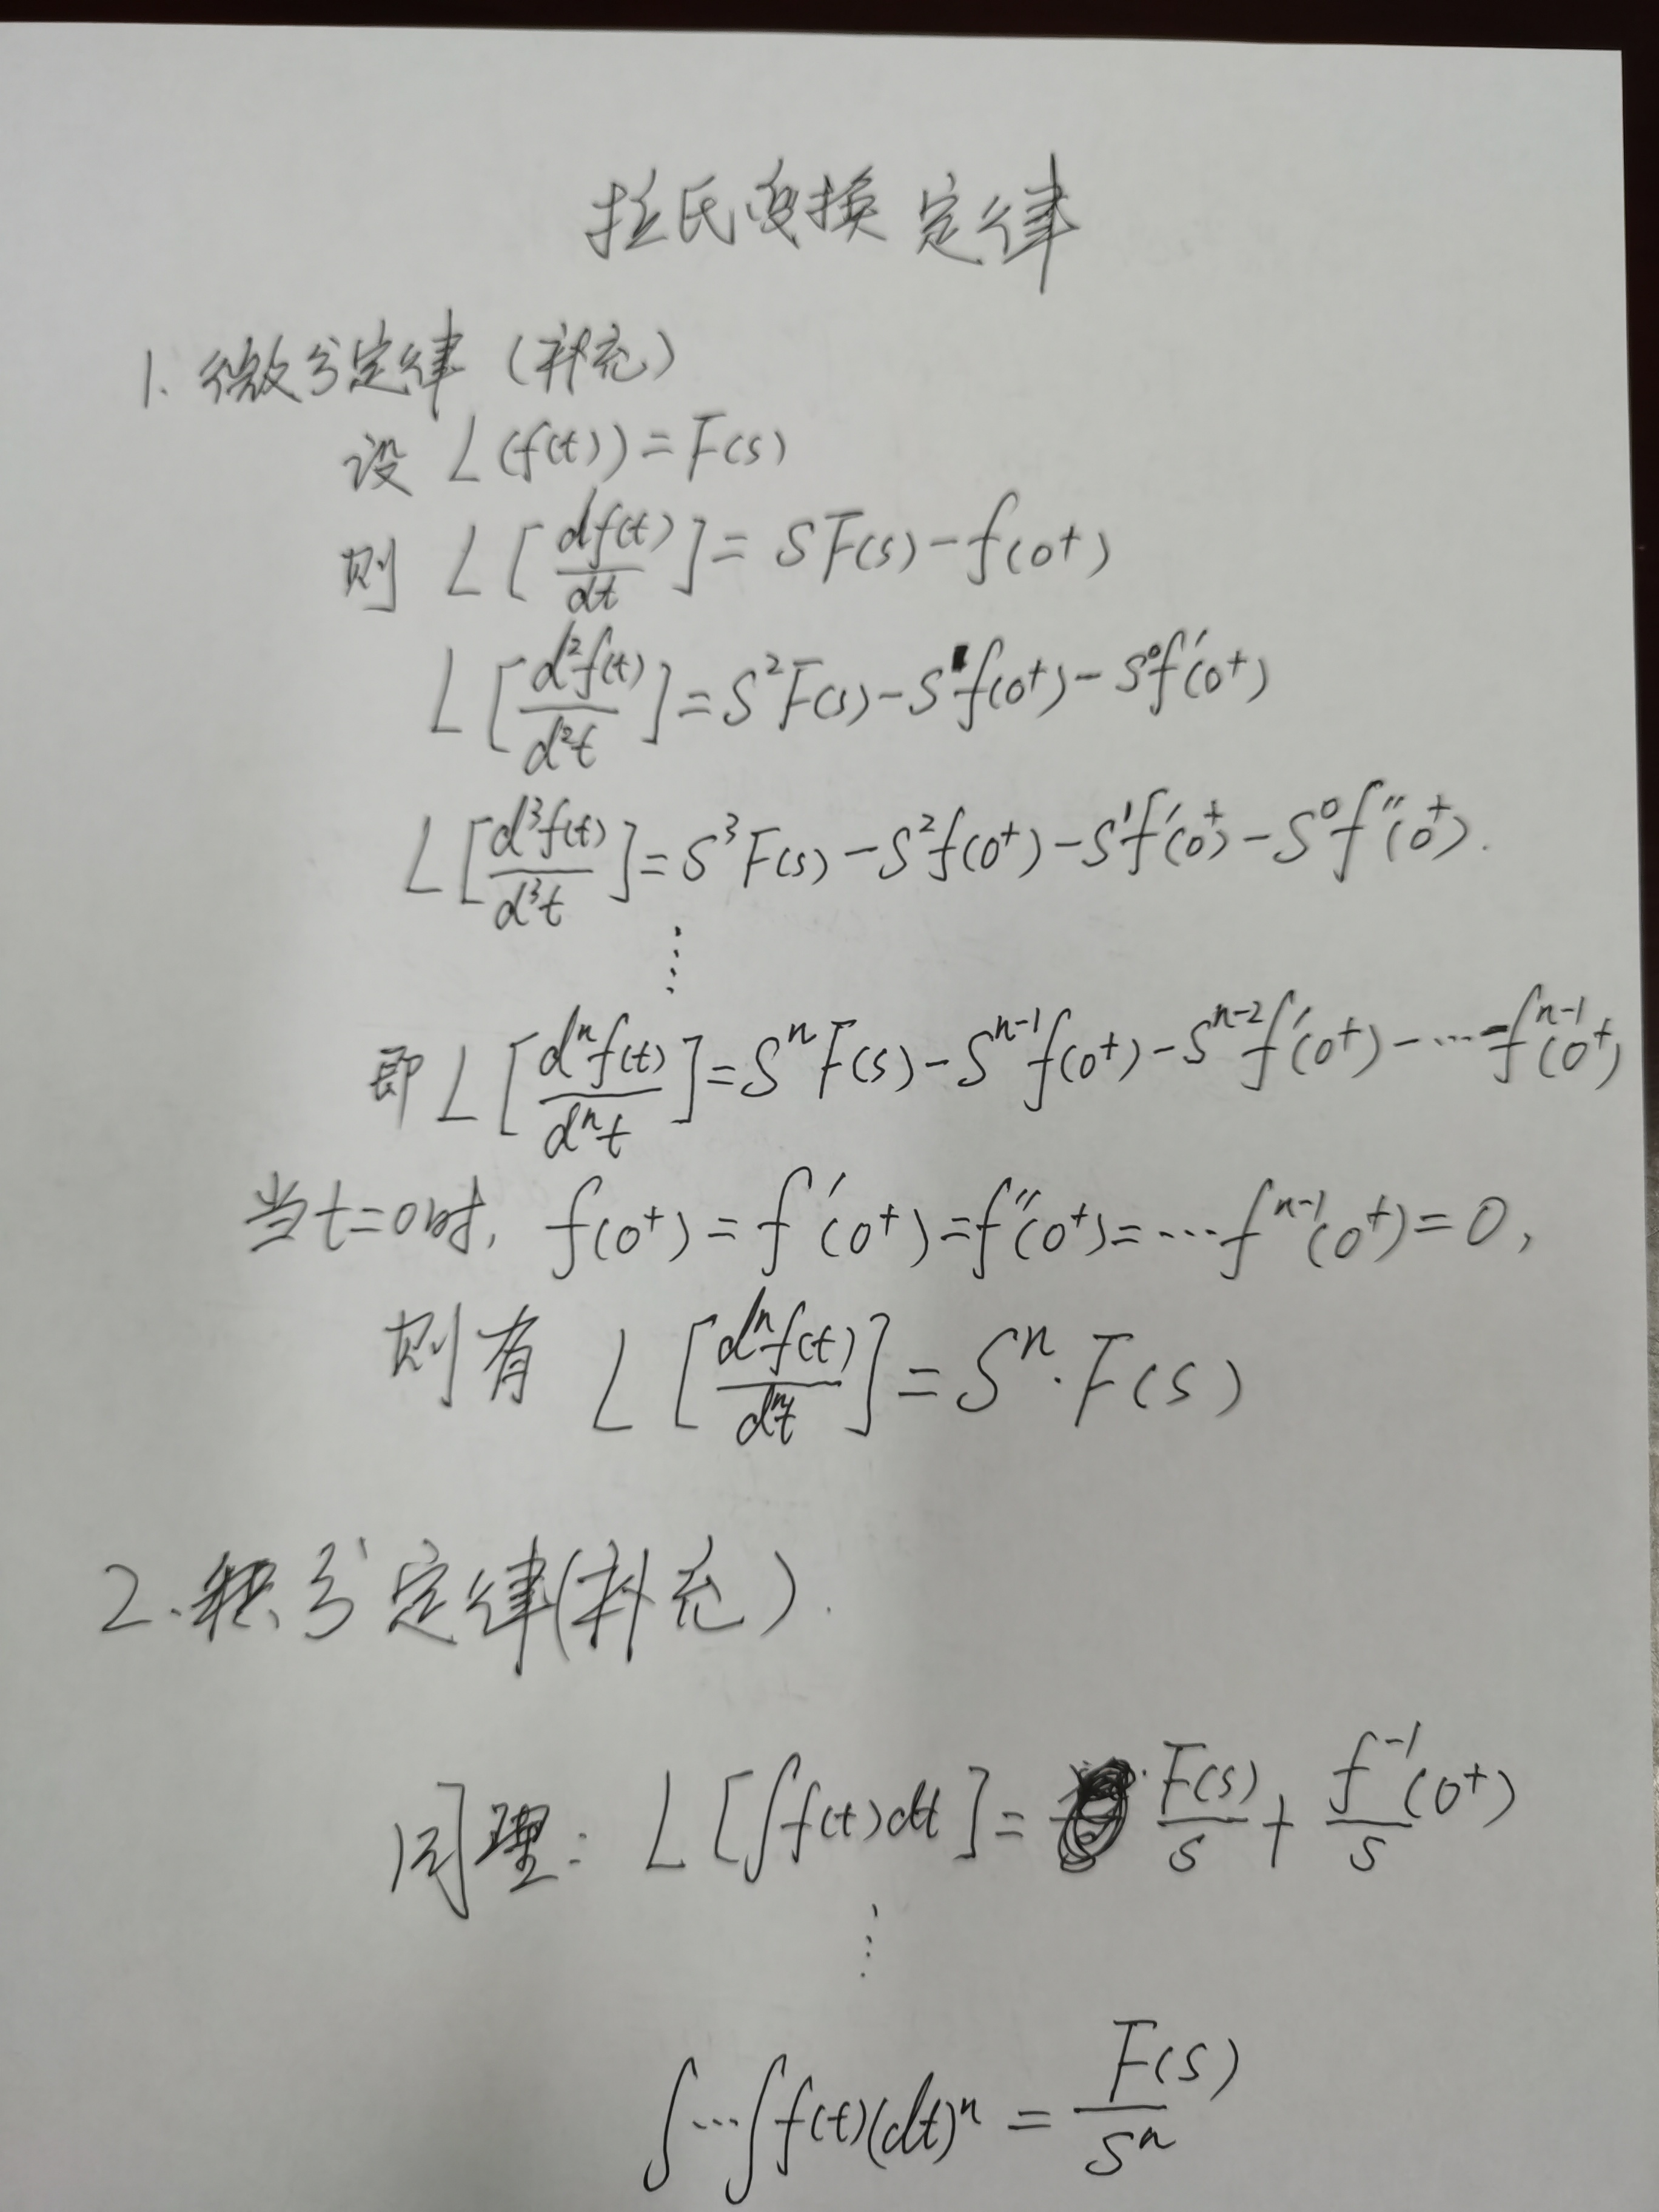 拉氏变换定律
1. 微分定律（补充）
设 L(f(t)) = F(s)
则 L[df(t)/dt] = SF(s) - f(0⁺)
L[d²f(t)/d²t] = S²F(s) - S¹f(0⁺) - S⁰f′(0⁺)
L[d³f(t)/d³t] = S³F(s) - S²f(0⁺) - S¹f′(0⁺) - S⁰f″(0⁺).
⋮
即 L[dⁿf(t)/dⁿt] = SⁿF(s) - Sⁿ⁻¹f(0⁺) - Sⁿ⁻²f′(0⁺) - ⋯ - fⁿ⁻¹(0⁺)
当t=0时, f(0⁺) = f′(0⁺) = f″(0⁺) = ⋯ fⁿ⁻¹(0⁺) = 0,
则有 L[dⁿf(t)/dⁿt] = Sⁿ · F(s)
2. 积分定律（补充）.
同理: L[∫f(t)dt] = F(s)/s + f⁻¹(0⁺)/s
⋮
∫⋯∫f(t)(dt)ⁿ = F(s)/sⁿ